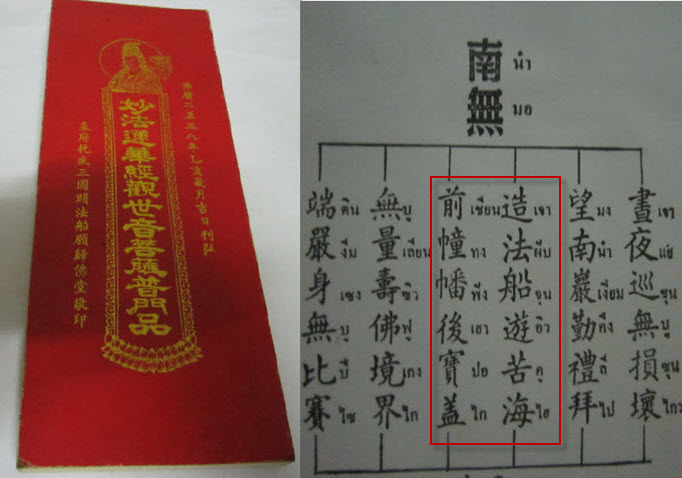 佛曆二五三八年乙亥歲月吉日刊弘
妙法蓮華經觀世音菩薩普門品
三國明法船願歸佛堂敬印
南無
นำ มอ
晝夜巡無損壞
แย่ ซุน บู ซุน ไกว
望南巖勤禮拜
มง นำ เงียม คึง ลี ไป
造法船遊苦海
เจา จุน อิว คู ไฮ
前幢幡後寶蓋
เซียน ทง พึง เฮา ปอ ไก
無量壽佛境界
บู เถียน ซิว ฟุ เกง ไก
端嚴身無比賽
งึม เซง บู ปี ไซ